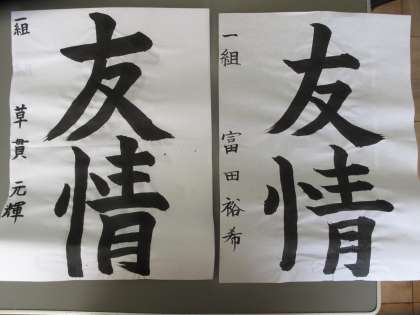 友情
一組
草貫元輝
友情
一組
富田裕希